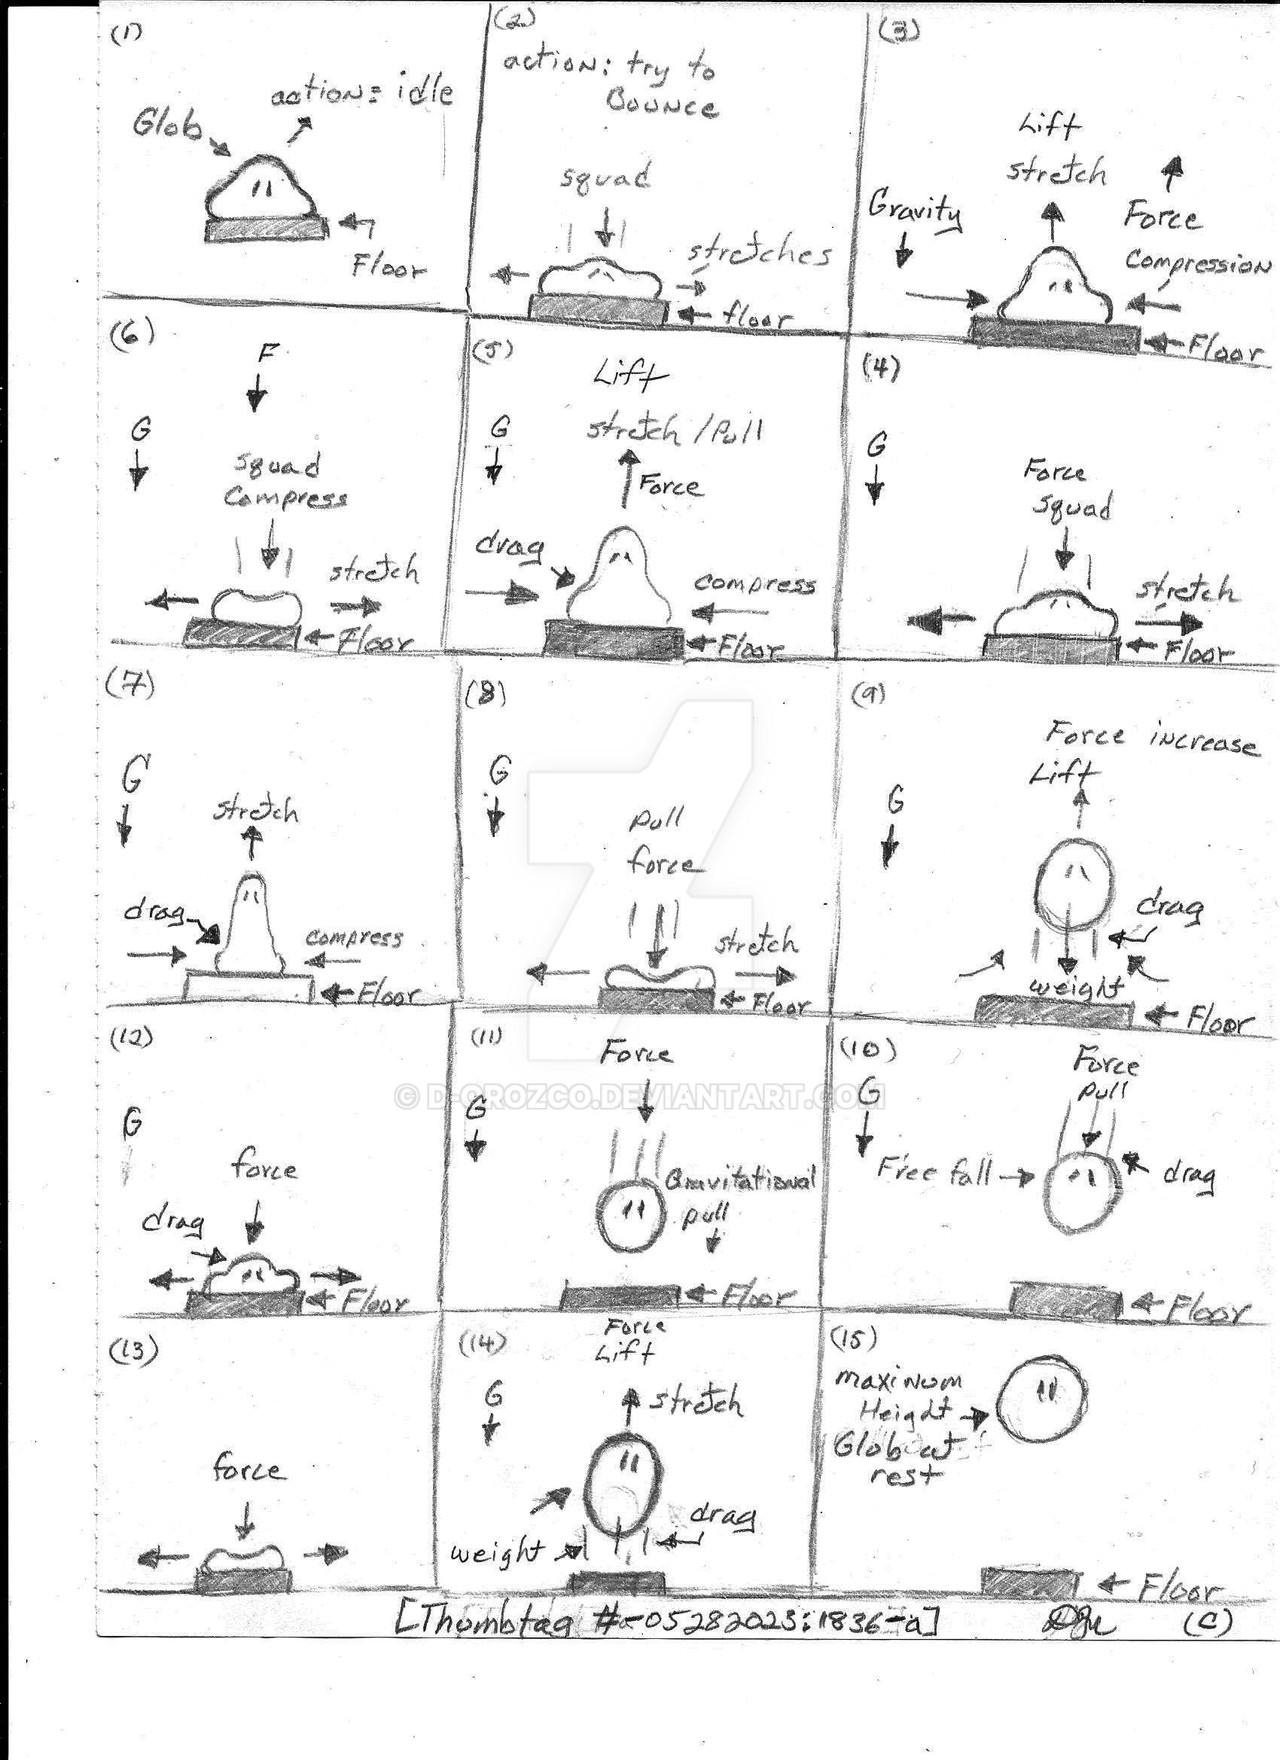 (1)
action= idle
Glob
Floor
(2)
action: try to
Bounce
squad
stretches
floor
(3)
Lift
stretch
Gravity
Force
Compression
Floor
(4)
G
Force
squad
stretch
Floor
(5)
Lift
G
stretch / Pull
Force
drag
compress
Floor
(6)
F
G
squad
Compress
stretch
Floor
(7)
G
stretch
drag
compress
Floor
(8)
G
pull
force
stretch
Floor
(9)
Force increase
Lift
G
drag
weight
Floor
(10)
Force
pull
G
Free fall
drag
Floor
(11)
Force
G
Gravitational
pull
Floor
(12)
G
force
drag
Floor
(13)
force
(14)
Force
Lift
G
stretch
drag
weight
(15)
maxinum
Height
Glob at
rest
Floor
© D-OROZCO.DEVIANTART.COM
[Thumbtag #a-05282023:1836-a]
(C)